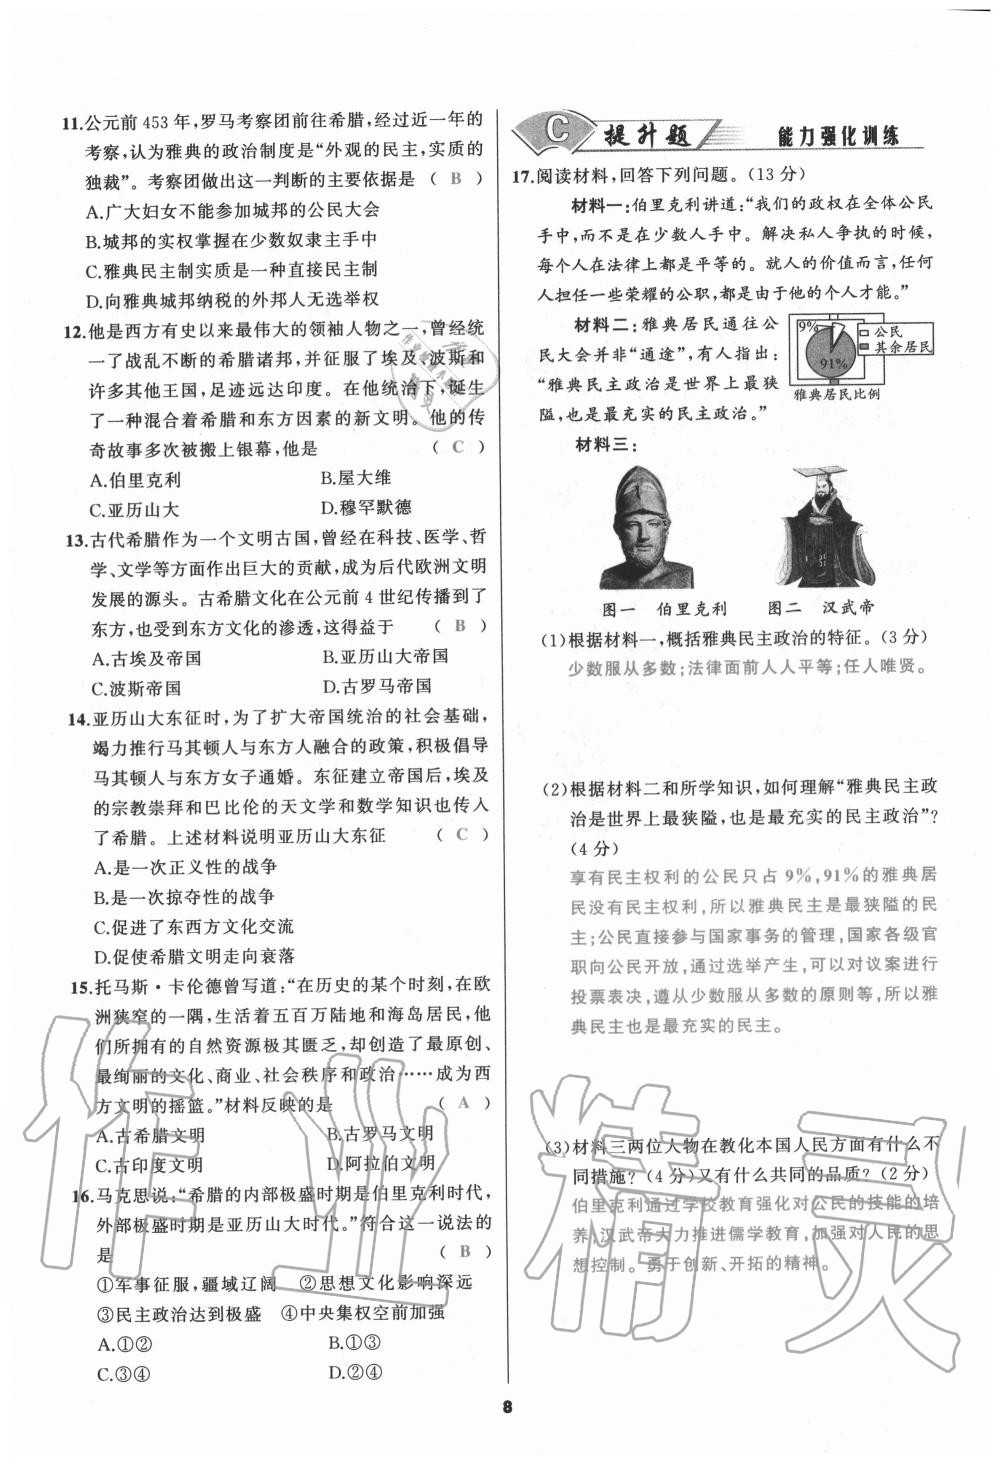 11.公元前 453 年,罗马考察团前往希腊,经过近一年的
考察,认为雅典的政治制度是“外观的民主,实质的
独裁”。考察团做出这一判断的主要依据是 ( B )
A.广大妇女不能参加城邦的公民大会
B.城邦的实权掌握在少数奴隶主手中
C.雅典民主制实质是一种直接民主制
D.向雅典城邦纳税的外邦人无选举权
12.他是西方有史以来最伟大的领袖人物之一,曾经统
一了战乱不断的希腊诸邦,并征服了埃及、波斯和
许多其他王国,足迹远达印度。在他统治下,诞生
了一种混合着希腊和东方因素的新文明。他的传
奇故事多次被搬上银幕,他是 ( C )
A.伯里克利 B.屋大维
C.亚历山大 D.穆罕默德
13.古代希腊作为一个文明古国,曾经在科技、医学、哲
学、文学等方面作出巨大的贡献,成为后代欧洲文明
发展的源头。古希腊文化在公元前 4 世纪传播到了
东方,也受到东方文化的渗透,这得益于 ( B )
A.古埃及帝国 B.亚历山大帝国
C.波斯帝国 D.古罗马帝国
14.亚历山大东征时,为了扩大帝国统治的社会基础,
竭力推行马其顿人与东方人融合的政策,积极倡导
马其顿人与东方女子通婚。东征建立帝国后,埃及
的宗教崇拜和巴比伦的天文学和数学知识也传入
了希腊。上述材料说明亚历山大东征 ( C )
A.是一次正义性的战争
B.是一次掠夺性的战争
C.促进了东西方文化交流
D.促使希腊文明走向衰落
15.托马斯·卡伦德曾写道:“在历史的某个时刻,在欧
洲狭窄的一隅,生活着五百万陆地和海岛居民,他
们所拥有的自然资源极其匮乏,却创造了最原创、
最绚丽的文化、商业、社会秩序和政治……成为西
方文明的摇篮。”材料反映的是 ( A )
A.古希腊文明 B.古罗马文明
C.古印度文明 D.阿拉伯文明
16.马克思说:“希腊的内部极盛时期是伯里克利时代,
外部极盛时期是亚历山大时代。”符合这一说法的
是 ( B )
①军事征服,疆域辽阔 ②思想文化影响深远
③民主政治达到极盛 ④中央集权空前加强
A.①② B.①③
C.③④ D.②④
C 提升题 能力强化训练
17.阅读材料,回答下列问题。(13 分)
材料一:伯里克利讲道:“我们的政权在全体公民
手中,而不是在少数人手中。解决私人争执的时候,
每个人在法律上都是平等的。就人的价值而言,任何
人担任一些荣耀的公职,都是由于他的个人才能。”
材料二:雅典居民通往公
民大会并非“通途”,有人指出:
“雅典民主政治是世界上最狭
隘,也是最充实的民主政治。”
9% 公民
91% 其余居民
雅典居民比例
材料三:
图一 伯里克利 图二 汉武帝
(1)根据材料一,概括雅典民主政治的特征。(3 分)
少数服从多数;法律面前人人平等;任人唯贤。
(2)根据材料二和所学知识,如何理解“雅典民主政
治是世界上最狭隘,也是最充实的民主政治”?
(4 分)
享有民主权利的公民只占 9%,91%的雅典居
民没有民主权利,所以雅典民主是最狭隘的民
主;公民直接参与国家事务的管理,国家各级官
职向公民开放,通过选举产生,可以对议案进行
投票表决,遵从少数服从多数的原则等,所以雅
典民主也是最充实的民主。
(3)材料三两位人物在教化本国人民方面有什么不
同措施?(4 分)又有什么共同的品质?(2 分)
伯里克利通过学校教育强化对公民的技能的培
养,汉武帝大力推进儒学教育,加强对人民的思
想控制。勇于创新、开拓的精神。
8
作业精灵